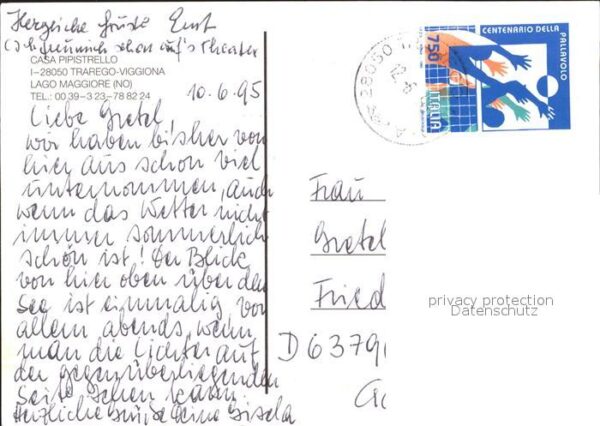 Herzliche Grüße Ernst
(Ich freu mich schon auf's Theater
CASA PIPISTRELLO
I-28050 TRAREGO-VIGGIONA
LAGO MAGGIORE (NO)
TEL.: 00 39-3 23-78 82 24
10.6.95
Liebe Gretel,
wir haben bisher von
hier aus schon viel
unternommen, auch
wenn das Wetter nicht
immer sommerlich
schön ist! Der Blick
von hier oben über den
See ist einmalig vor
allem abends, wenn
man die Lichter auf
der gegenüberliegenden
Seite sehen kann.
Herzliche Grüße Deine Gisela
CENTENARIO DELLA
PALLAVOLO
750
ITALIA
28050
Frau
Gretel
Fried
D 6379
privacy protection
Datenschutz